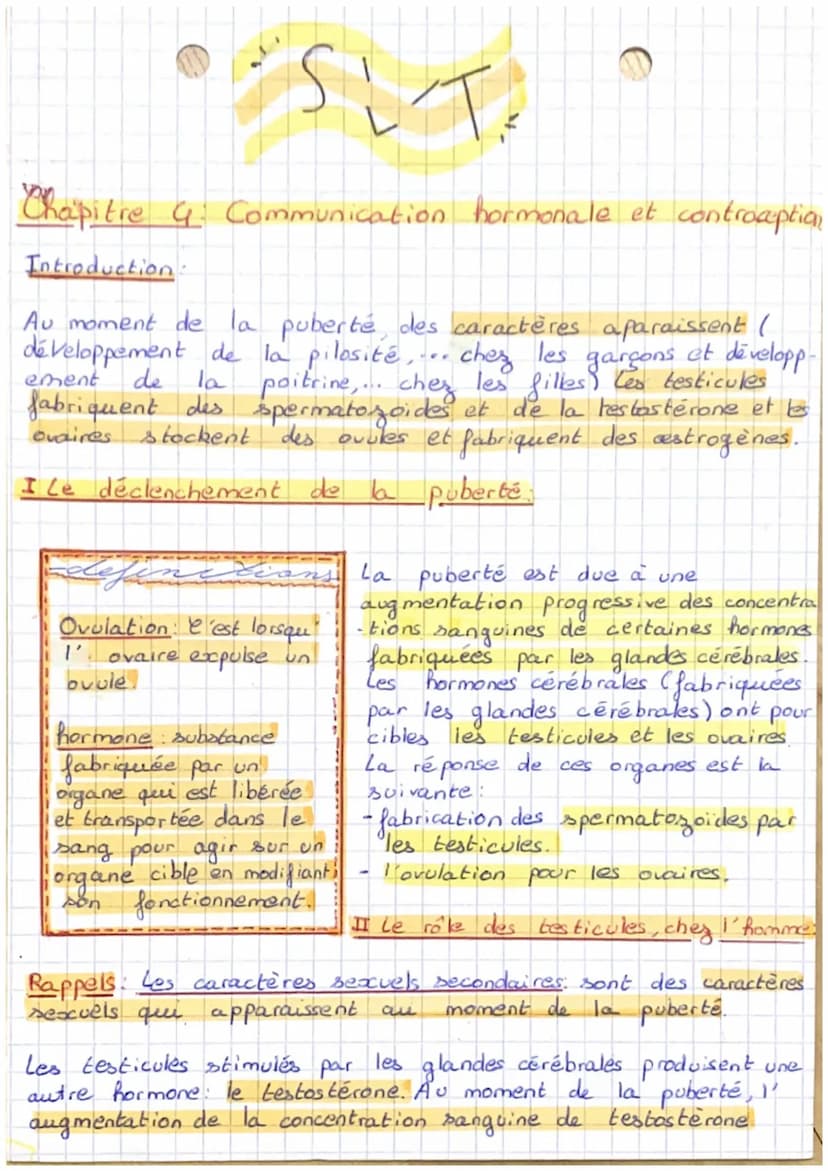 SVT
Chapitre 4: Communication hormonale et contraception
Introduction:
Au moment de la puberté, des caractères aparaissent (
développement de la pilosité,... chez les garçons et développ-
ement de la poitrine,... chez les filles) Les testicules
fabriquent des spermatozoïdes et de la testostérone et les
ovaires stockent des ovules et fabriquent des œstrogènes.
I Le déclenchement de la puberté:
définitions
Ovulation: C'est lorsqu'
l'ovaire expulse un
ovule.
hormone: substance
fabriquée par un
organe qui est libérée
et transportée dans le
sang pour agir sur un
organe cible en modifiant
son fonctionnement.
La puberté est due à une
augmentation progressive des concentra
-tions sanguines de certaines hormones
fabriquées par les glandes cérébrales.
Les hormones cérébrales (fabriquées
par les glandes cérébrales) ont pour
cibles les testicules et les ovaires.
La réponse de ces organes est la
suivante:
- fabrication des spermatozoïdes par
les testicules.
- l'ovulation pour les ovaires.
II Le rôle des testicules, chez l'homme:
Rappels: Les caractères sexuels secondaires: sont des caractères
sexuels qui apparaissent au moment de la puberté.
Les testicules stimulés par les glandes cérébrales produisent une
autre hormone: le testostérone. Au moment de la puberté, l'
augmentation de la concentration sanguine de testostérone